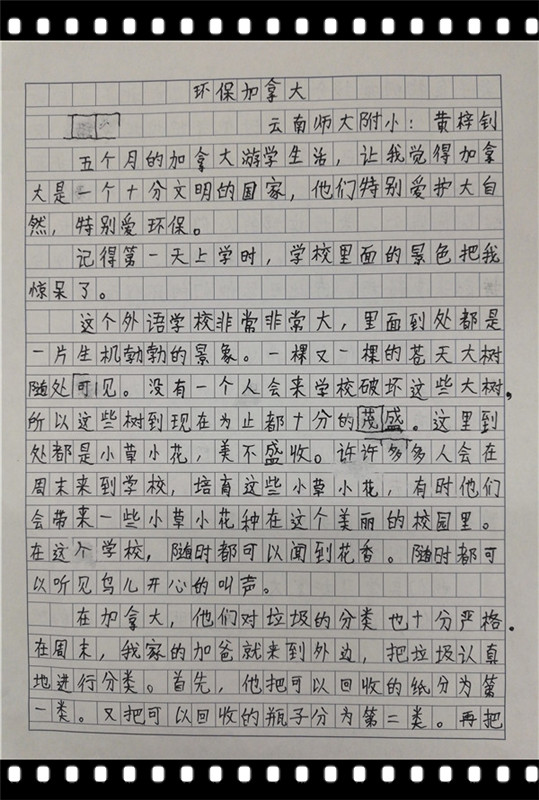 环保加拿大
云南师大附小：黄梓钊
五个月的加拿大游学生活，让我觉得加拿
大是一个十分文明的国家，他们特别爱护大自
然，特别爱环保。
记得第一天上学时，学校里面的景色把我
惊呆了。
这个外语学校非常非常大，里面到处都是
一片生机勃勃的景象。一棵又一棵的苍天大树
随处可见。没有一个人会来学校破坏这些大树，
所以这些树到现在为止都十分的茂盛。这里到
处都是小草小花，美不盛收。许许多多人会在
周末来到学校，培育这些小草小花，有时他们
会带来一些小草小花种在这个美丽的校园里。
在这个学校，随时都可以闻到花香。随时都可
以听见鸟儿开心的叫声。
在加拿大，他们对垃圾的分类也十分严格．
在周末，我家的加爸就来到外边，把垃圾认真
地进行分类。首先，他把可以回收的纸分为第
一类。又把可以回收的瓶子分为第二类。再把